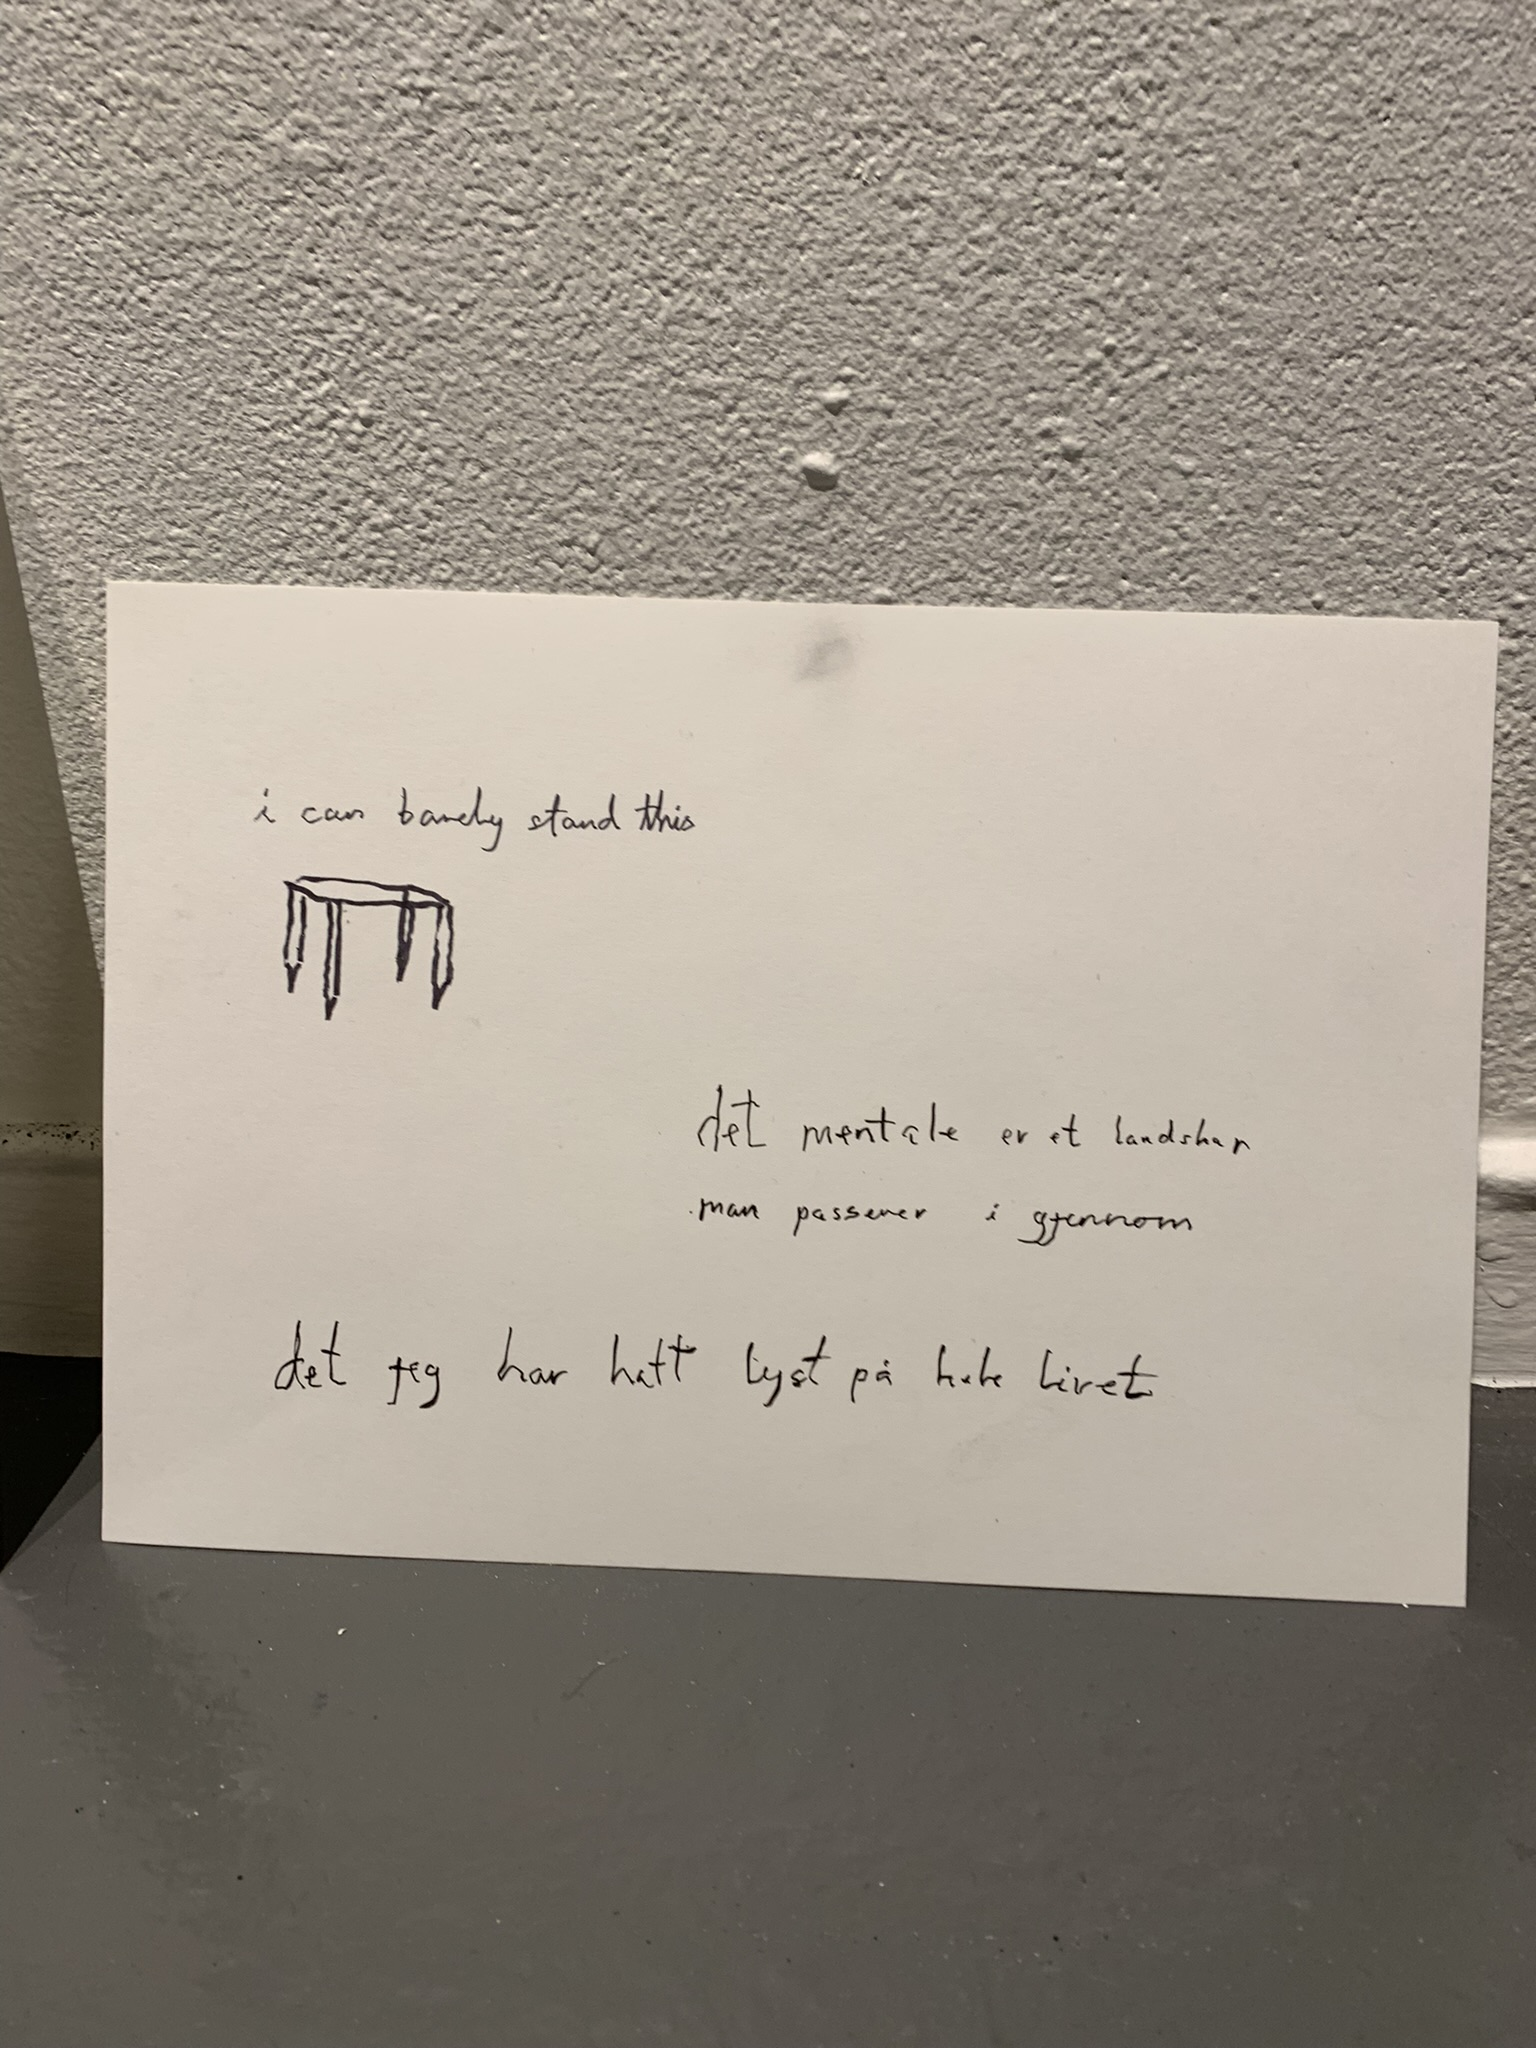 i can barely stand this
det mentale er et landskap
man passerer i gjennom
det jeg har hatt lyst på hele livet